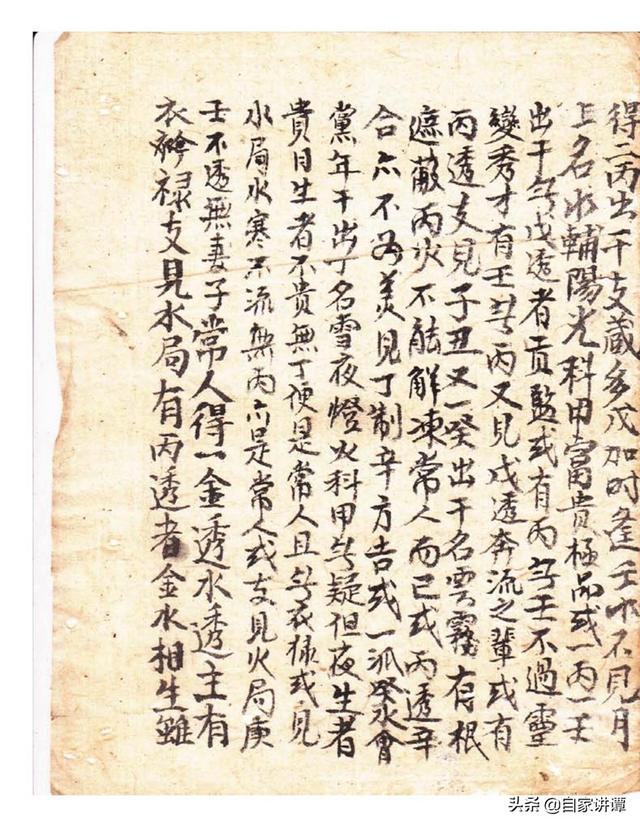 得二丙出干支蔵多戊加时逢壬也不見月
上名水輔陽光科甲富貴極品或一丙一壬
出干无戊透者貢監或有丙无壬不過靈
變秀才有壬无丙又見戊透奔流之輩或有
丙透支見子丑又一癸出干名雲霧有根
遮蔽丙火不能解凍常人而已或丙透辛
合亦不為美見丁制辛方吉或一派癸水會
黨年干出丁名雪夜燈火科甲无疑但夜生者
貴日生者不貴無丁便是常人且无衣禄或見
水局水寒不流無丙亦是常人或支見火局庚
壬不透無妻子常人得一金透水透主有
衣衿禄支見水局有丙透者金水相生雖
头条 @自家讲谭